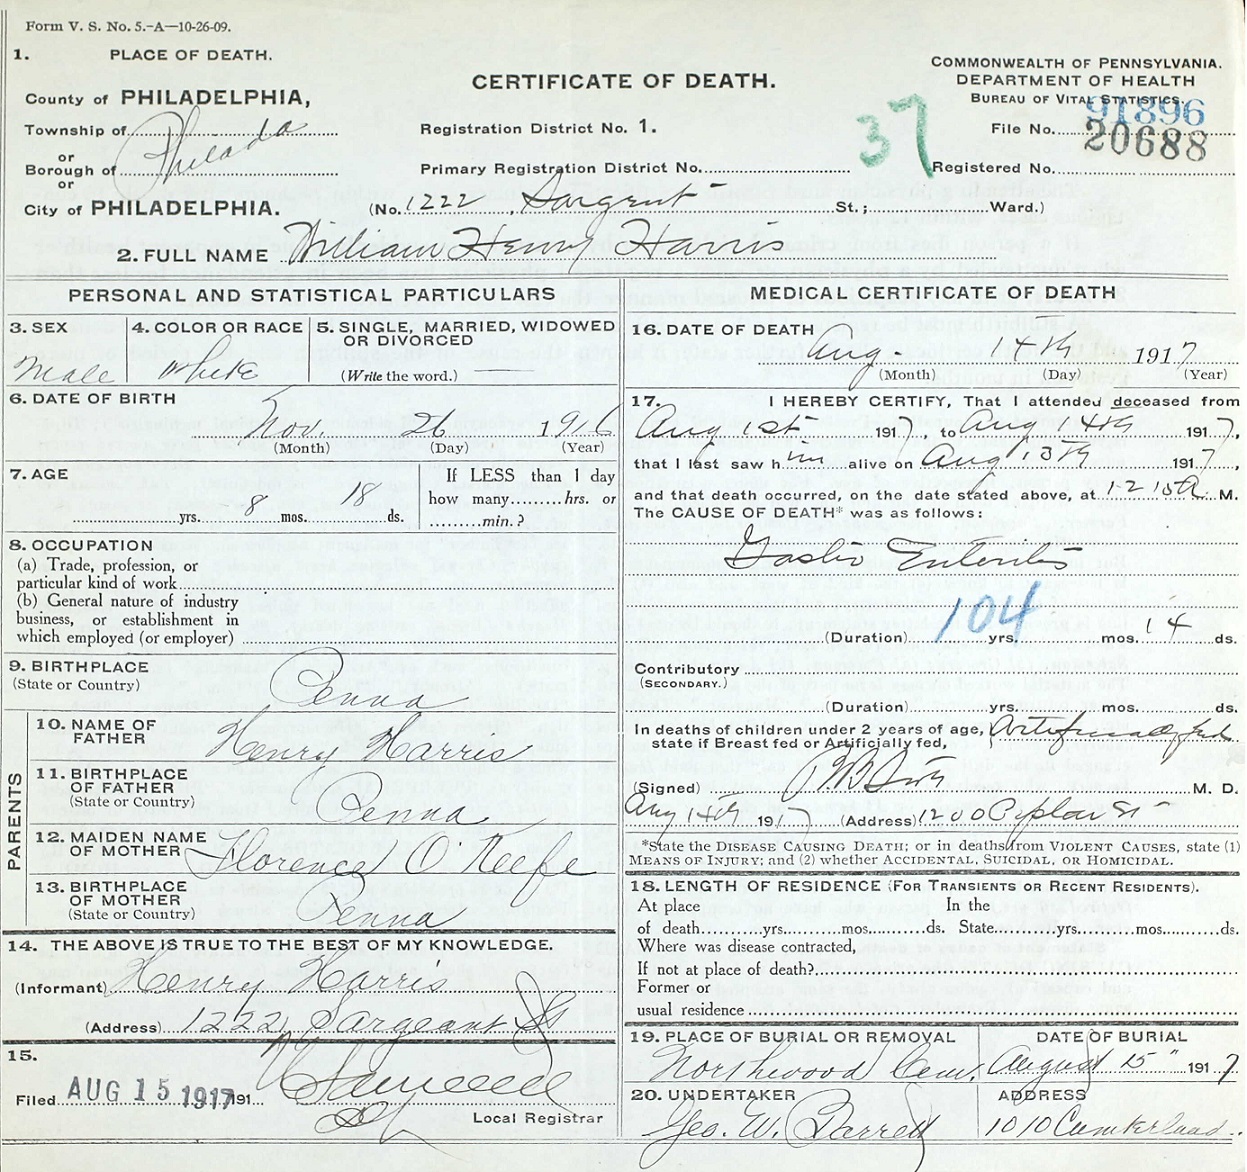 Form V. S. No. 5.-A—10-26-09.
1. PLACE OF DEATH.
County of PHILADELPHIA,
Township of
or
Borough of
Philada
or
City of PHILADELPHIA.
CERTIFICATE OF DEATH.
Registration District No. 1.
Primary Registration District No.
37
COMMONWEALTH OF PENNSYLVANIA.
DEPARTMENT OF HEALTH
BUREAU OF VITAL STATISTICS.
91896
File No.
20688
Registered No.
(No. 1222, Sargent St.; Ward.)
2. FULL NAME William Henry Harris
PERSONAL AND STATISTICAL PARTICULARS
3. SEX
Male
4. COLOR OR RACE
White
5. SINGLE, MARRIED, WIDOWED
OR DIVORCED
(Write the word.) —
6. DATE OF BIRTH
Nov. 26 1916
(Month) (Day) (Year)
7. AGE
yrs. 8 mos. 18 ds.
If LESS than 1 day
how many hrs. or
min.?
8. OCCUPATION
(a) Trade, profession, or
particular kind of work
(b) General nature of industry
business, or establishment in
which employed (or employer)
9. BIRTHPLACE
(State or Country)
Penna
PARENTS
10. NAME OF
FATHER
Henry Harris
11. BIRTHPLACE
OF FATHER
(State or Country)
Penna
12. MAIDEN NAME
OF MOTHER
Florence O'Keefe
13. BIRTHPLACE
OF MOTHER
(State or Country)
Penna
14. THE ABOVE IS TRUE TO THE BEST OF MY KNOWLEDGE.
(Informant) Henry Harris
(Address) 1222 Sargeant St
15.
Filed AUG 15 1917 191
Local Registrar
MEDICAL CERTIFICATE OF DEATH
16. DATE OF DEATH
Aug. 14th 1917
(Month) (Day) (Year)
17. I HEREBY CERTIFY, That I attended deceased from
Aug 1st 1917 to Aug 4th 1917,
that I last saw him alive on Aug 13th 1917,
and that death occurred, on the date stated above, at 12 15 A. M.
The CAUSE OF DEATH* was as follows:
Gastro Enteritis
104
(Duration) yrs. mos. 14 ds.
Contributory
(SECONDARY.)
(Duration) yrs. mos. ds.
In deaths of children under 2 years of age,
state if Breast fed or Artificially fed, Artificially fed
(Signed) M. D.
Aug 14th 1917 (Address) 1200 Poplar St
*State the DISEASE CAUSING DEATH; or in deaths from VIOLENT CAUSES, state (1)
MEANS OF INJURY; and (2) whether ACCIDENTAL, SUICIDAL, OR HOMICIDAL.
18. LENGTH OF RESIDENCE (FOR TRANSIENTS OR RECENT RESIDENTS).
At place In the
of death yrs. mos. ds. State yrs. mos. ds.
Where was disease contracted,
If not at place of death?
Former or
usual residence
19. PLACE OF BURIAL OR REMOVAL
Northwood Cem.
DATE OF BURIAL
August 15" 1917
20. UNDERTAKER
Geo. W. Barrett
ADDRESS
1010 Cumberland